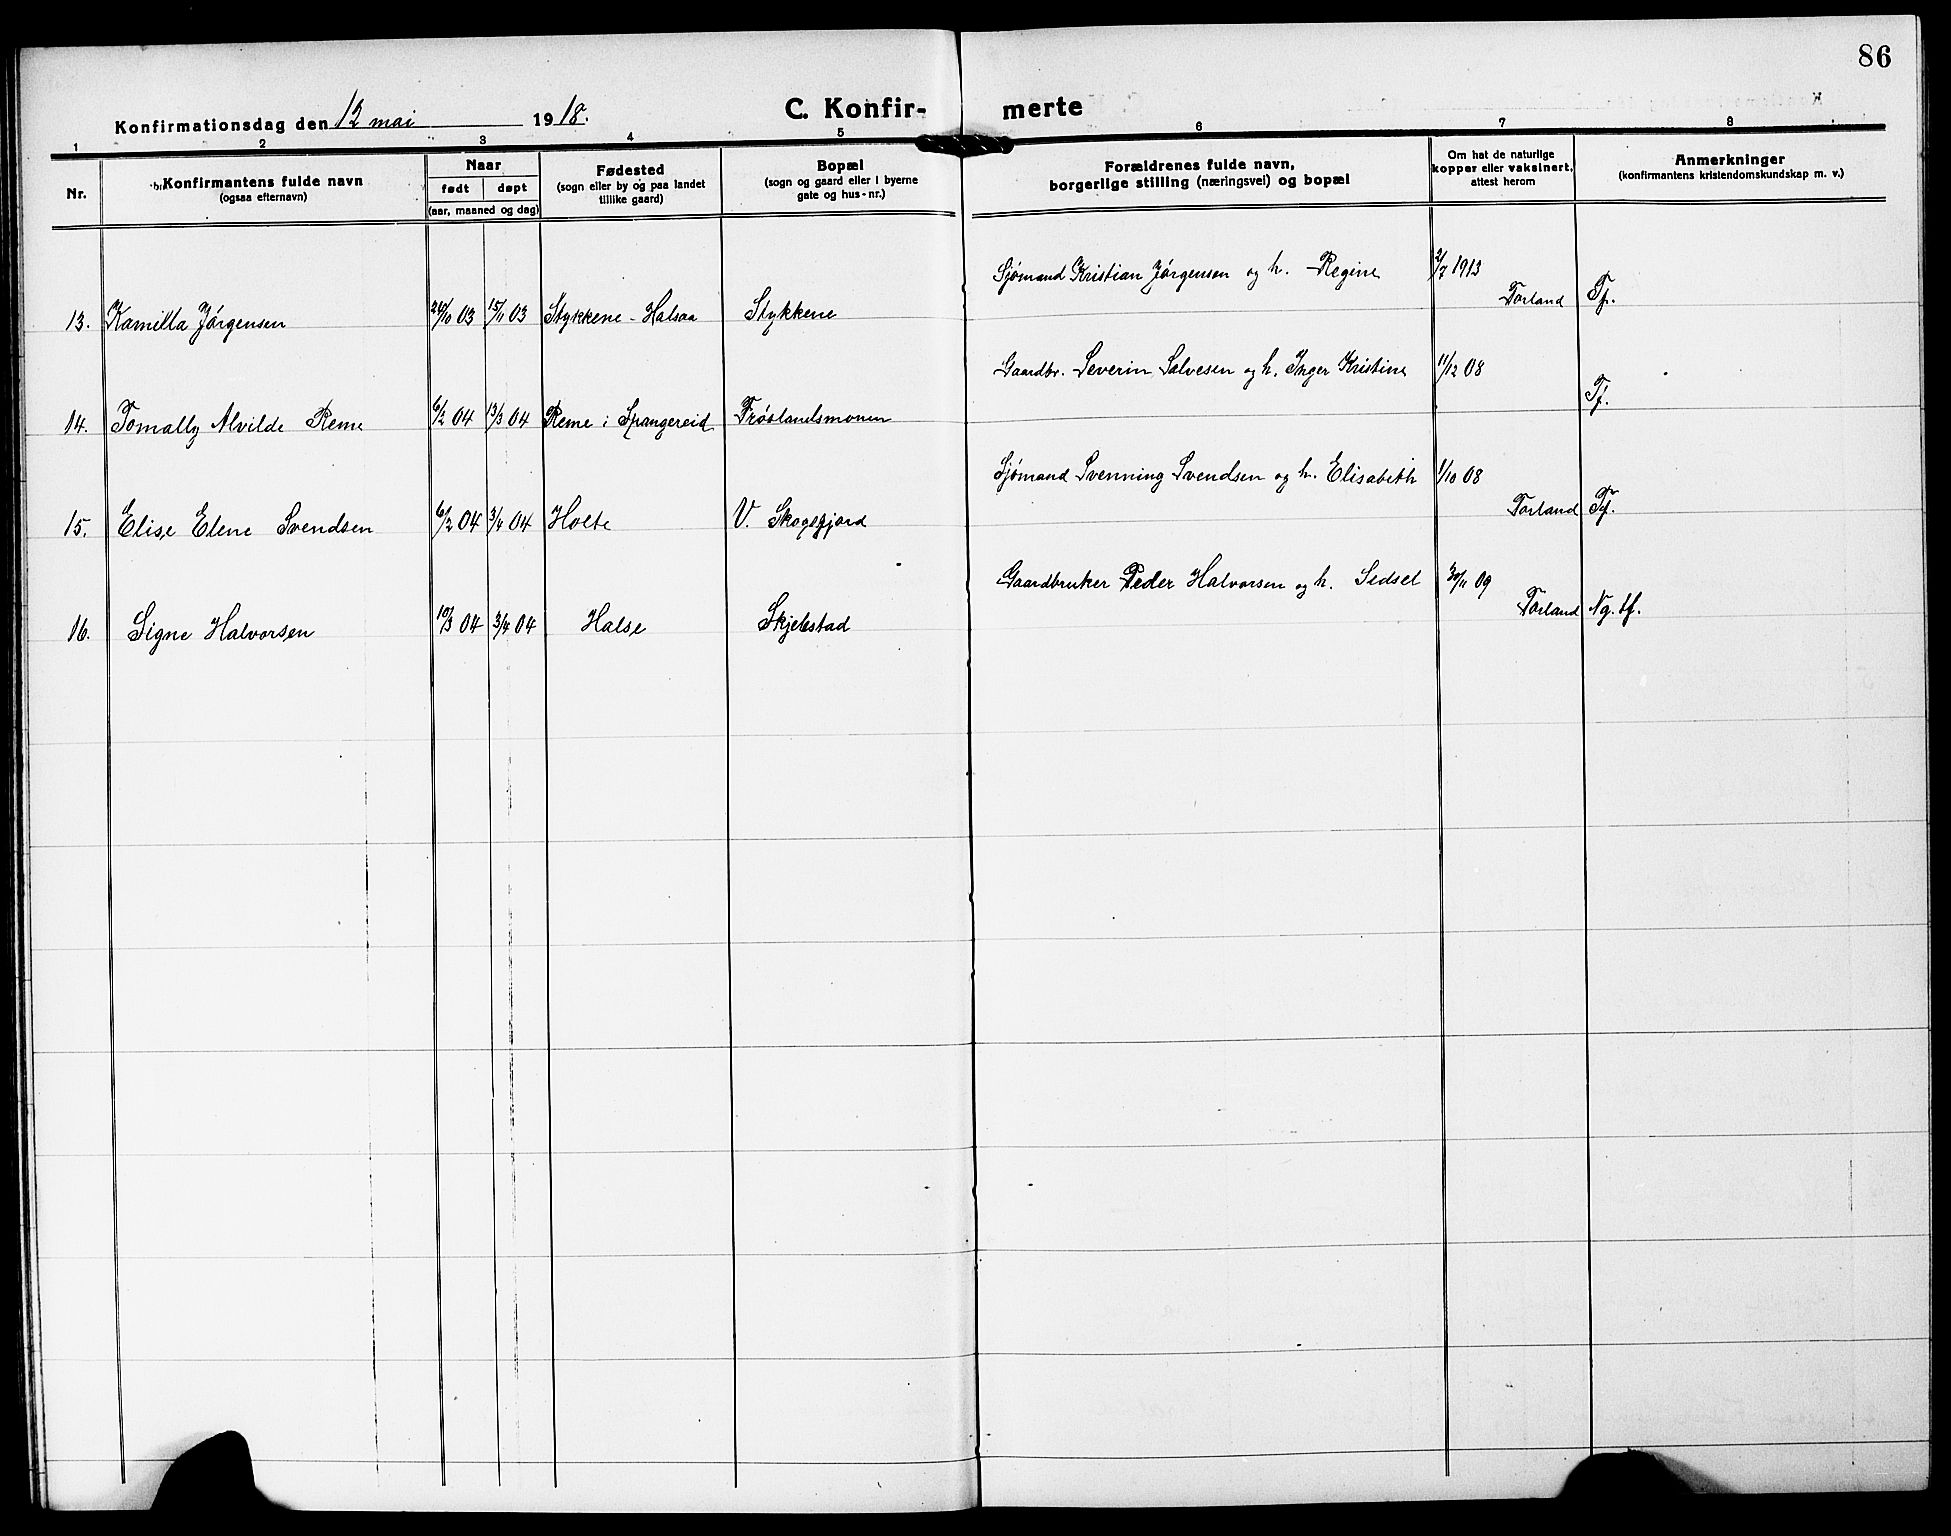 86
Konfirmationsdag den 12 mai 1918.
C. Konfir- merte
1 2 3 4 5 6 7 8
Nr.
Konfirmantens fulde navn
(ogsaa efternavn)
Naar
født døpt
(aar, maaned og dag)
Fødested
(sogn eller by og paa landet
tillike gaard)
Bopæl
(sogn og gaard eller i byerne
gate og hus-nr.)
Forældrenes fulde navn,
borgerlige stilling (næringsvei) og bopæl
Om hat de naturlige
kopper eller vaksinert,
attest herom
Anmerkninger
(konfirmantens kristendomskundskap m. v.)
Sjømand Kristian Jørgensen og h. Regine 2/7 1913
13. Kamilla Jørgensen 24/10 03 15/11 03 Stykkene - Halsaa Stykkene Torland Tf.
Gaardbr. Severin Salvesen og h. Inger Kristine 11/12 08
14. Tomally Alvilde Reme 6/2 04 13/3 04 Reme i Spangereid Frøslandsmonen Tf.
Sjømand Svenning Svendsen og h. Elisabeth 1/10 08
15. Elise Elene Svendsen 6/2 04 3/4 04 Holte V. Skogsfjord Torland Tf.
Gaardbruker Peder Halvorsen og h. Sidsel 30/11 09
16. Signe Halvorsen 10/3 04 3/4 04 Halse Skjelstad Torland Ng. tf.